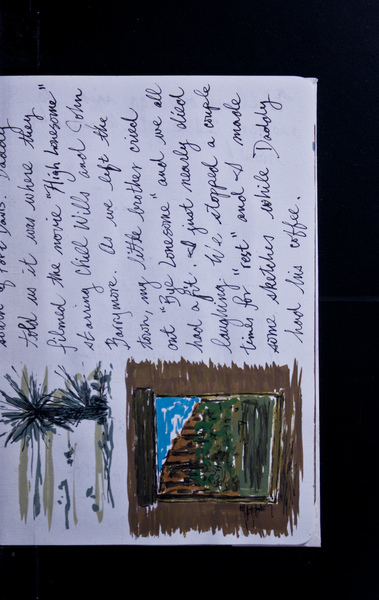 told us it was where they
filmed the movie "High Lonesome"
starring Chill Wills and John
Barrymore. As we left the
town, my little brother cried
out "Bye Lonesome" and we all
had a fit. I just nearly died
laughing. We stopped a couple
times for "rest" and I made
some sketches while Daddy
had his coffee.